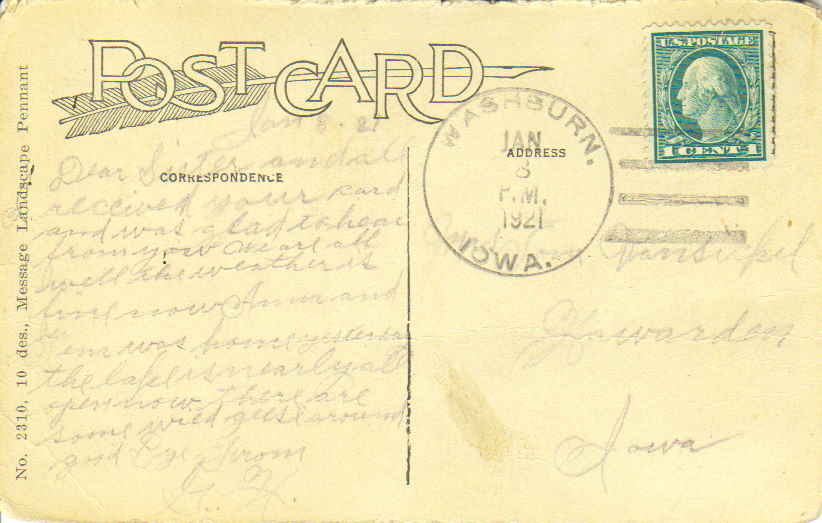 POST CARD
U.S. POSTAGE
1 CENT 1
WASHBURN.
JAN
8
P.M.
1921
IOWA.
ADDRESS
CORRESPONDENCE
No. 2310, 10 des., Message Landscape Pennant
Jan 8. 21
Dear Sister and all
received your kard
and was glad to hear
from you we are all
well the weather is
fine now Anna and
was home yesterday
the lake is nearly all
open now there are
some wild geese around
good Bye from
Hawarden
Iowa